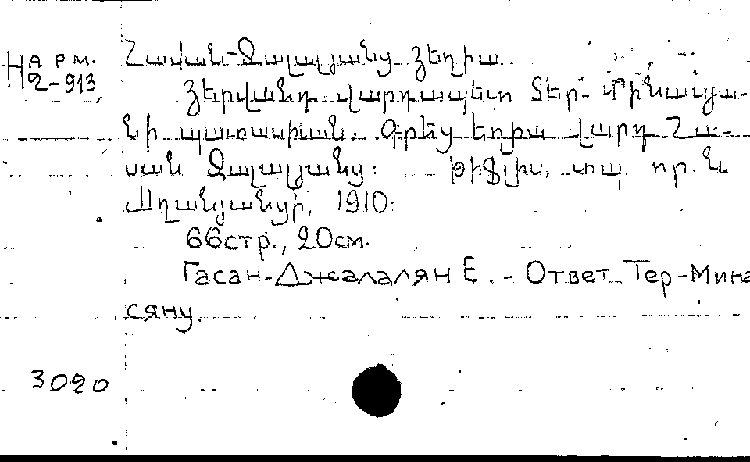 На рм.
2-913
Հասան-Ջալալյանց Եղիա
Երվանդ վարդապետ Տեր-Մինասյա-
նի պատասխան. Գրեց Եղիա վարդ Հա-
սան Ջալալյանց: Թիֆլիս, տպ. որ. Ն
Աղանյանցի, 1910:
66стр., 20см.
Гасан-Джалалян Е. - Ответ Тер-Мина
сяну.
3020